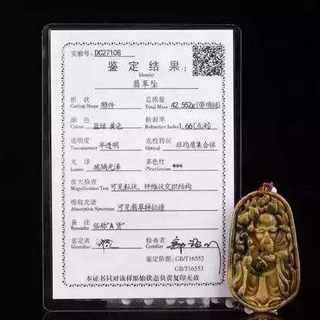 实验号: DC27108
鉴定结果:
Identity
翡翠坠
形状 雕件 总质量 42.552g(带项链)
Cutting Shape Total Mass
颜色 蓝绿 黄色 折射率 1.66(点测)
Color Refractive Index
透明度 半透明 光性特征 非均质集合体
Transparency Optical
光泽 玻璃光泽 多色性 ***
Luster Pleochroism
放大检查 可见粒状、纤维状交织结构
Magnification Test
吸收光谱 可见翡翠特征谱
Absorption Spectrum
备注 俗称"A货"
Remarks
鉴定者 检查者
Certifier
鉴定依据: GB/T16552
GB/T16553
本证书只对该样原始状态负责复印无效